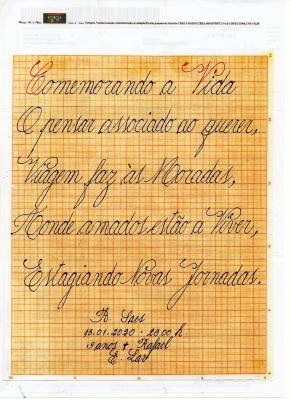 Comemorando a Vida
O pensar associado ao querer,
Viagem faz às Moradas,
Aonde amados estão a Viver,
Estagiando Novas Jornadas.
B. Saes
18.01.2020 - 23:00 h
3 anos + Rafael
E. Lar